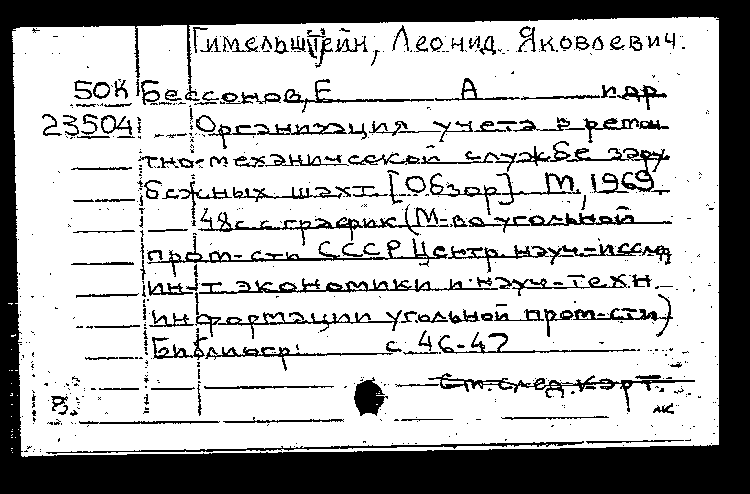 Гимельштейн, Леонид Яковлевич.
50К Бессонов, Е А идр.
23504 Организация учета в ремон
тно-механической службе зару
бежных шахт. [Обзор]. М., 1969.
48с. с график. (М-во угольной
пром-сти СССР. Центр. науч.-исслед.
ин-т экономики и науч.-техн.
информации угольной пром-сти)
Библиогр: с. 46-47
См. след. карт.
В.